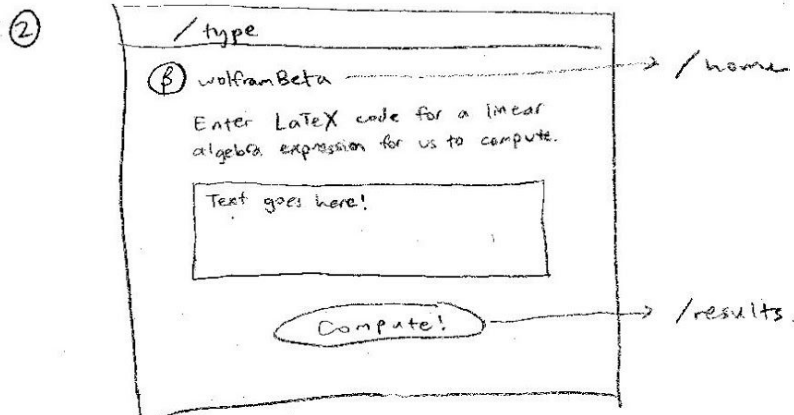 ②
/type
β wolframBeta
/home
Enter LaTeX code for a linear
algebra expression for us to compute.
Text goes here!
Compute!
/results.